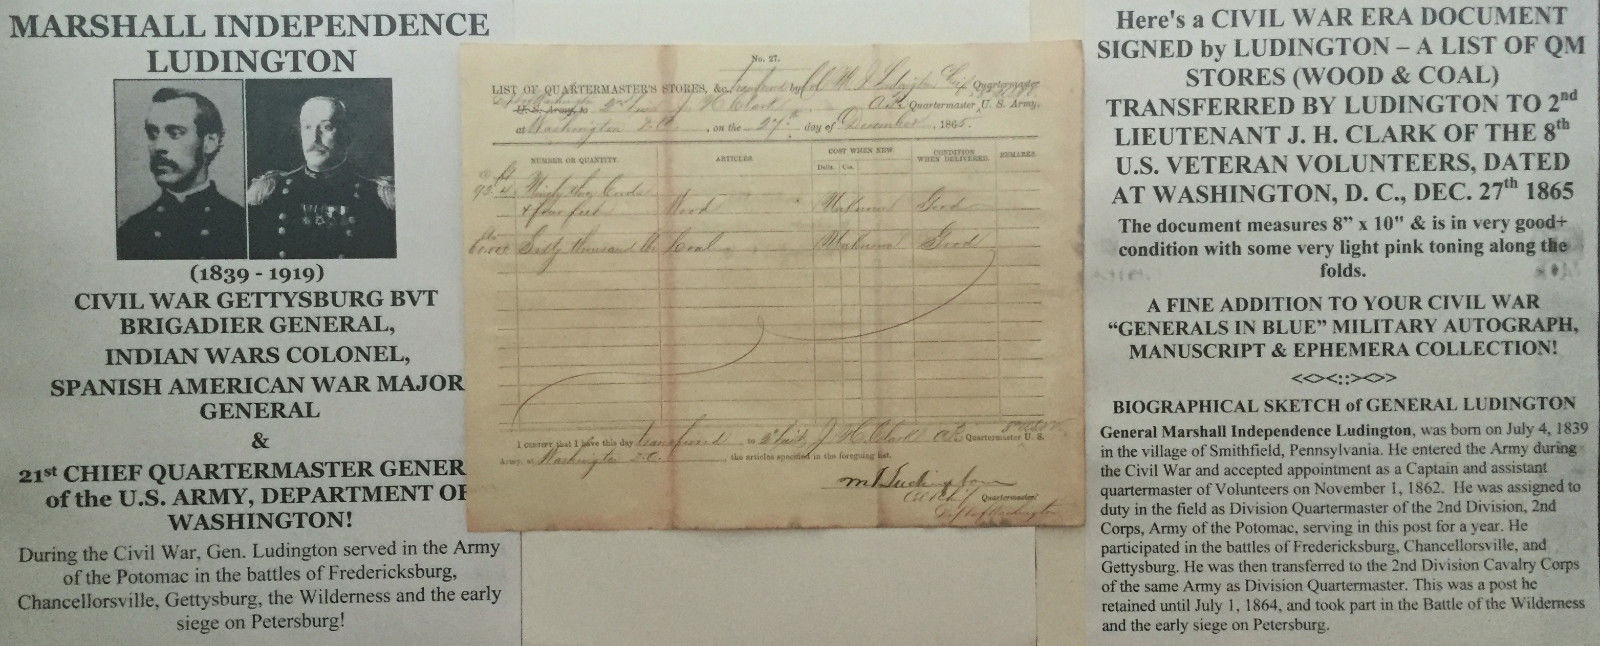 MARSHALL INDEPENDENCE
LUDINGTON
(1839 - 1919)
CIVIL WAR GETTYSBURG BVT
BRIGADIER GENERAL,
INDIAN WARS COLONEL,
SPANISH AMERICAN WAR MAJOR
GENERAL
&
21st CHIEF QUARTERMASTER GENER
of the U.S. ARMY, DEPARTMENT OF
WASHINGTON!
During the Civil War, Gen. Ludington served in the Army
of the Potomac in the battles of Fredericksburg,
Chancellorsville, Gettysburg, the Wilderness and the early
siege on Petersburg!
No. 27.
LIST OF QUARTERMASTER'S STORES, &c., transferred by Col. M. I. Ludington Chief Quartermaster
U. S. Army, to 2nd Lieut. J. H. Clark A.A. Quartermaster, U. S. Army,
at Washington D.C., on the 27th day of December, 1865.
NUMBER OR QUANTITY. ARTICLES. COST WHEN NEW. CONDITION WHEN DELIVERED. REMARKS.
Dolls. Cts.
Ninety two Cords
& four feet Wood Unknown Good
60,000 Sixty thousand lbs Coal Unknown Good
I CERTIFY that I have this day transferred to 2d Lieut. J. H. Clark Quartermaster U. S.
Army, at Washington D.C., the articles specified in the foregoing list.
M I Ludington
Quartermaster
Dep't of Washington
Here's a CIVIL WAR ERA DOCUMENT
SIGNED by LUDINGTON – A LIST OF QM
STORES (WOOD & COAL)
TRANSFERRED BY LUDINGTON TO 2nd
LIEUTENANT J. H. CLARK OF THE 8th
U.S. VETERAN VOLUNTEERS, DATED
AT WASHINGTON, D. C., DEC. 27th 1865
The document measures 8” x 10" & is in very good+
condition with some very light pink toning along the
folds.
A FINE ADDITION TO YOUR CIVIL WAR
“GENERALS IN BLUE” MILITARY AUTOGRAPH,
MANUSCRIPT & EPHEMERA COLLECTION!
<<><::><>>
BIOGRAPHICAL SKETCH of GENERAL LUDINGTON
General Marshall Independence Ludington, was born on July 4, 1839
in the village of Smithfield, Pennsylvania. He entered the Army during
the Civil War and accepted appointment as a Captain and assistant
quartermaster of Volunteers on November 1, 1862. He was assigned to
duty in the field as Division Quartermaster of the 2nd Division, 2nd
Corps, Army of the Potomac, serving in this post for a year. He
participated in the battles of Fredericksburg, Chancellorsville, and
Gettysburg. He was then transferred to the 2nd Division Cavalry Corps
of the same Army as Division Quartermaster. This was a post he
retained until July 1, 1864, and took part in the Battle of the Wilderness
and the early siege on Petersburg.